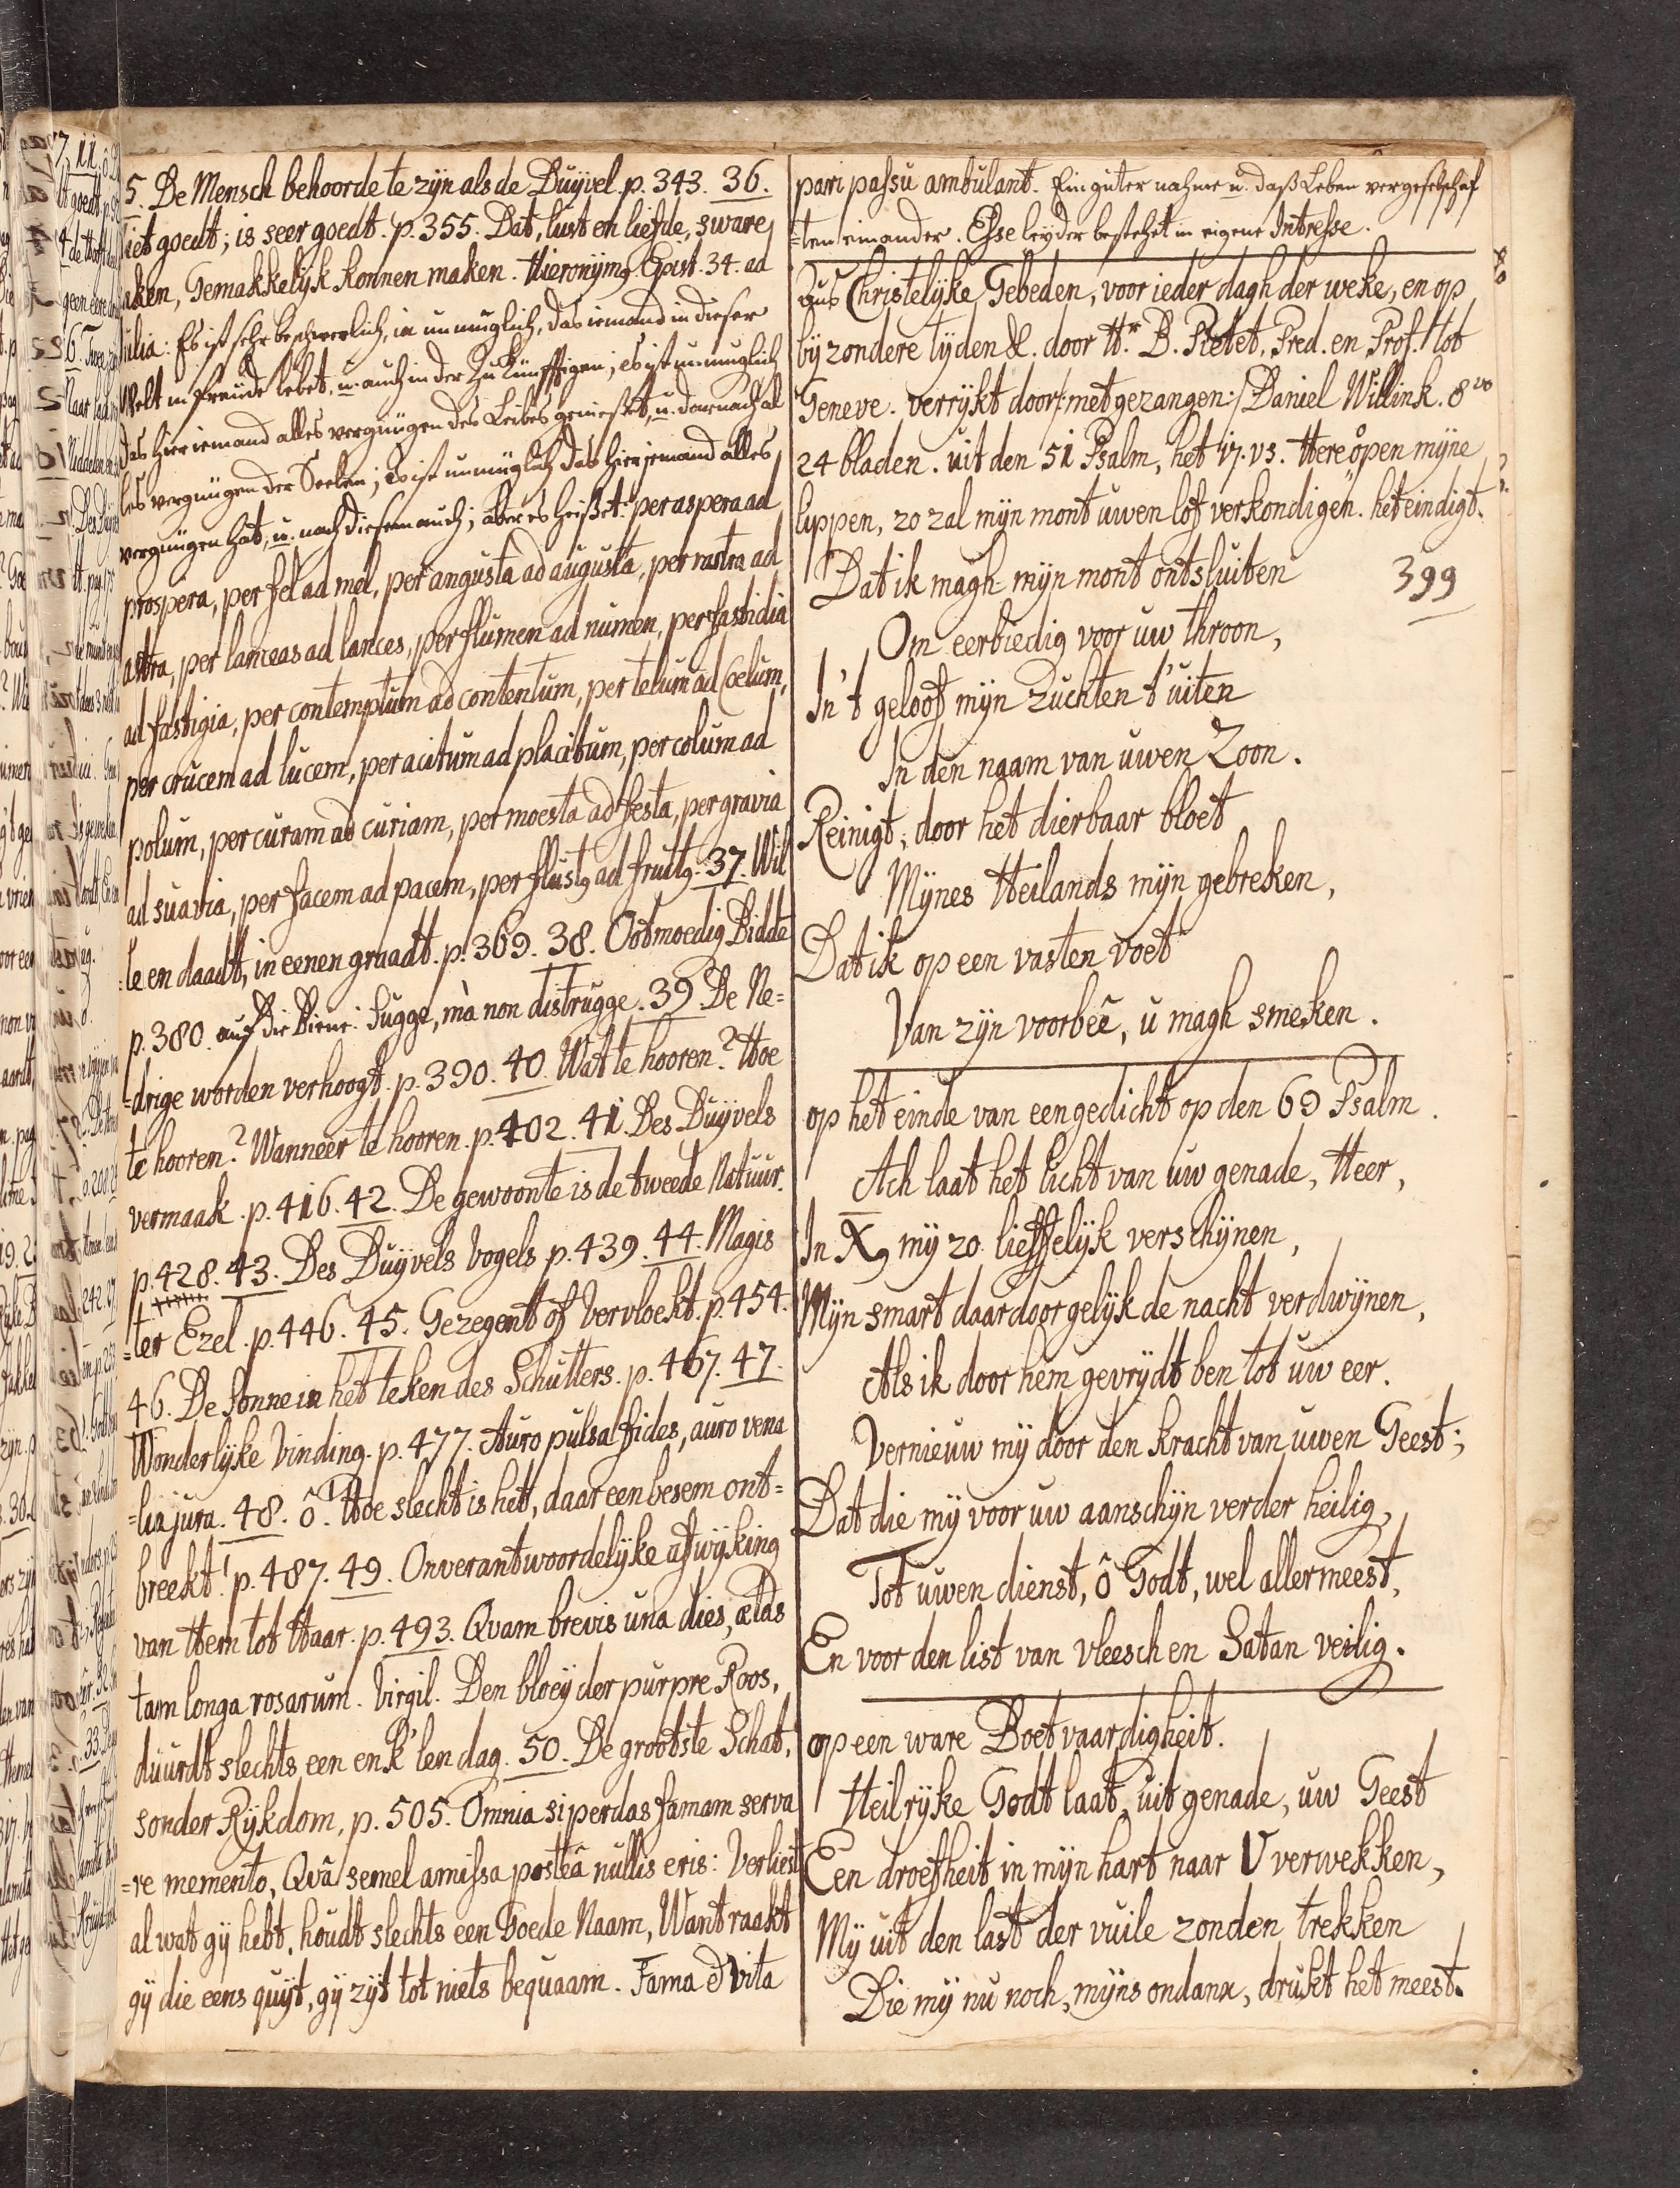 5. De Mensch behoorde te zyn als de Duyvel. p. 343. 36.
Niet goedt; is seer goedt. p. 355. Dat, lust en liefde, sware
aken, Gemakkelyk konnen maken. Hieronymꝰ Epist. 34. ad
Iulia: Es ist sehr beschwerlich, ia unmuglich, das iemand in dieser
Welt in freude lebet, u. auch in der zu künfftigen; es ist unmuglich
das hier iemand alles vergnügen des Leibes geniesset, u. darnach al
les vergnügen der Seelen; es ist unmüglich das hier jemand alles
vergnügen hat, u. nach diesem auch; aber es heisset: per aspera ad
prospera, per fel ad mel, per angusta ad augusta, per rastra ad
astra, per lanceas ad lances, per flumen ad numen, per fastidia
ad fastigia, per contemptum ad contentum, per telum ad Coelum,
per crucem ad lucem, per acitum ad placitum, per colum ad
polum, per curam ad curiam, per moesta ad festa, per gravia
ad suavia, per facem ad pacem, per flustꝰ ad fruitꝰ. 37. Wil
=le en daadt, in eenen graadt. p. 369. 38. Ootmoedig Bidde
p. 380. auf die Biene: fugge, mà non distrugge. 39. De Ne=
=drige worden verhoogt. p. 390. 40. Wat te hooren? Hoe
te hooren? Wanneer te hooren. p. 402. 41. Des Duyvels
vermaak. p. 416. 42. De gewoonte is de tweede Natuur.
p. 428. 43. Des Duyvels Vogels p. 439. 44. Magis
=ter Ezel. p. 446. 45. Gezegent of Vervloekt. p. 454.
46. De Sonne in het teken des Schutters. p. 467. 47.
Wonderlyke Vinding. p. 477. Auro pulsa fides, auro vena
=lia jura. 48. ô. Hoe slecht is het, daar een besem ont=
breekt! p. 487. 49. Onverantwoordelyke afwyking
van Hem tot Haar. p. 493. Qvam brevis una dies, ætas
tam longa rosarum. Virgil. Den bloey der purpre Roos,
duurdt slechts een enk'len dag. 50. De grootste Schat,
sonder Rykdom, p. 505. Omnia si perdas famam serva
=re memento, Qvâ semel amissa posteâ nullis eris: Verliest
al wat gy hebt, houdt slechts een Goede Naam, Want raakt
gy die eens quyt, gy zyt tot niets bequaam. Fama & Vita
pari passu ambulant. Ein guter nahme u. das Leben vergeselschaf
=ten einander. Esse leyder bestehet in eigene Intresse.
Dus Christelyke Gebeden, voor ieder dagh der weke, en op
byzondere tyden &. door Hr. B. Pictet, Pred. en Prof. tot
Geneve. verrykt door /: met gezangen :/ Daniel Willink. 8vo
24 bladen. uit den 51 Psalm, het 17. vs. Here open myne
lippen, zo zal myn mont uwen lof verkondigen. het eindigt.
Dat ik magh myn mont ontsluiten
399
Om eerbiedig voor uw throon,
In 't geloof myn zuchten t' uiten
In den naam van uwen Zoon.
Reinigt, door het dierbaar bloet
Mynes Heilands myn gebreken,
Dat ik op een vasten voet
Van zyn voorbeê, u magh smeken.
op het einde van een gedicht op den 69 Psalm.
Ach laat het licht van uw genade, Heer,
In Xꝰ my zo lieffelyk verschynen,
Myn smart daardoor gelyk de nacht verdwynen,
Als ik door hem gevrydt ben tot uw eer.
Vernieuw my door den kracht van uwen Geest;
Dat die my voor uw aanschyn verder heilig,
Tot uwen dienst, ô Godt, wel allermeest,
En voor den list van vleesch en Satan veilig.
op een ware Boetvaardigheit.
Heilryke Godt laat, uit genade, uw Geest
Een droefheit in myn hart naar U verwekken,
My uit den last der vuile zonden trekken
Die my nu noch, myns ondanx, drukt het meest.